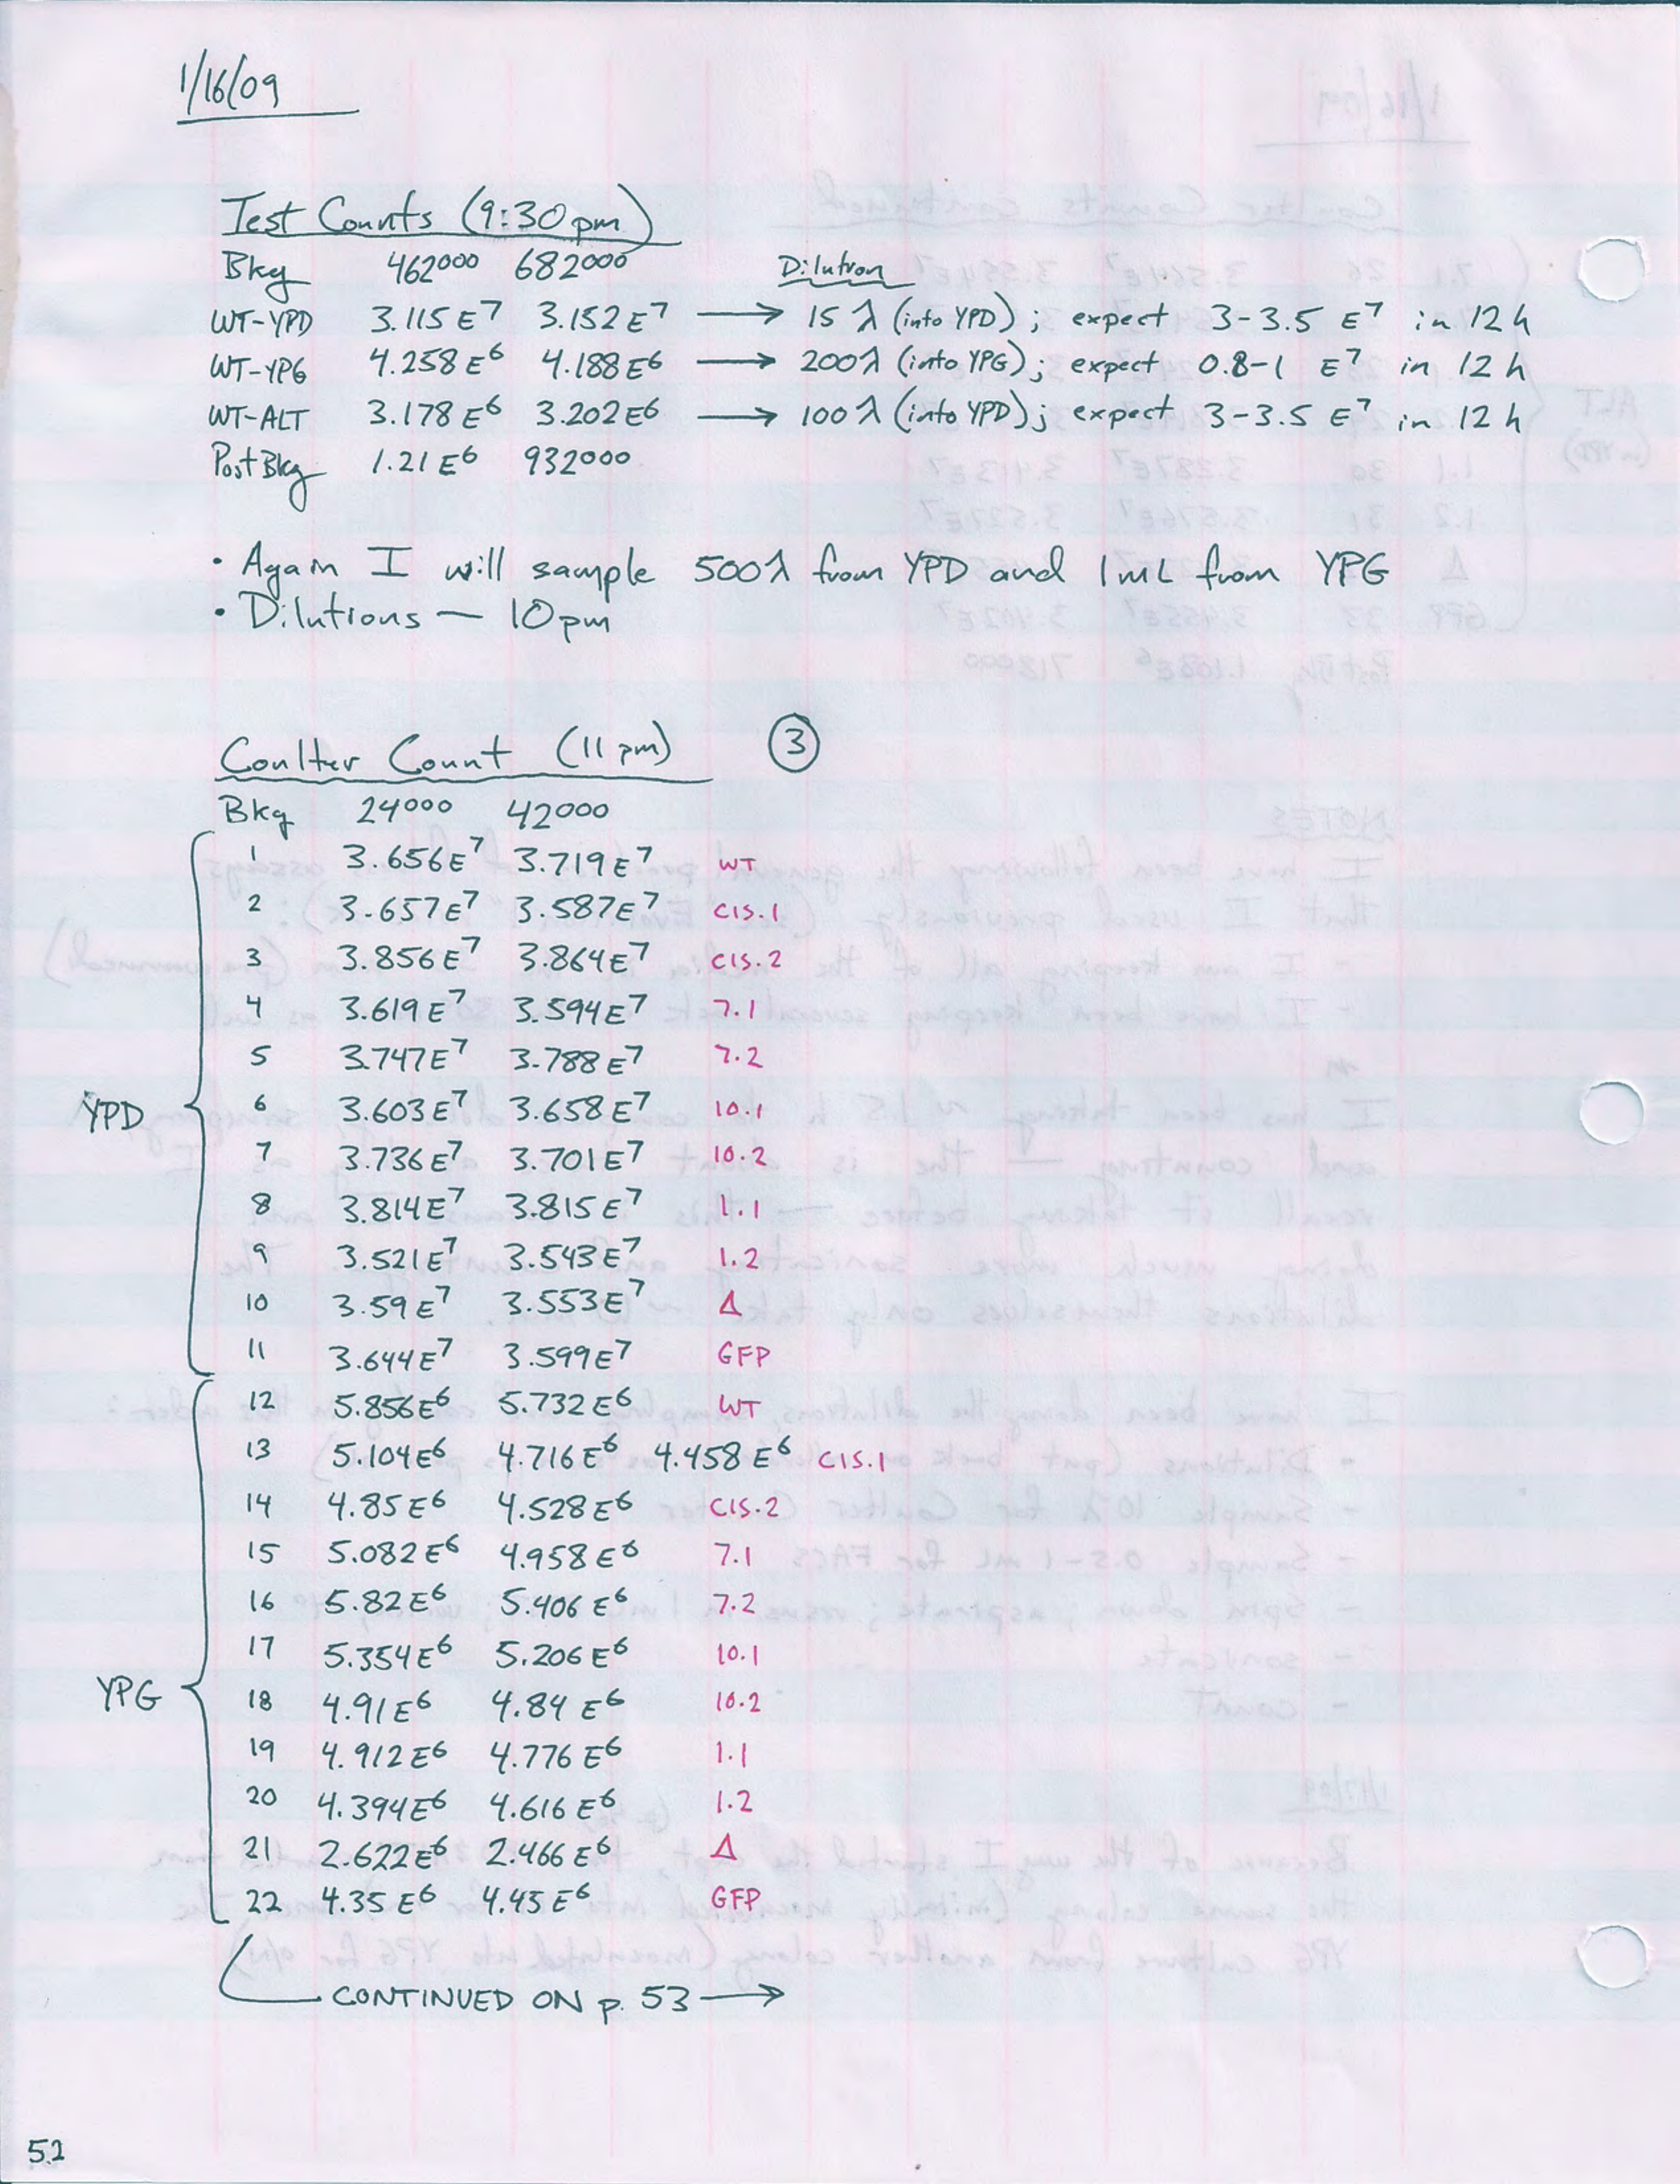 1/16/09
Test Counts (9:30pm)
Bkg 462000 682000 Dilution
WT-YPD 3.115E7 3.152E7 → 15 λ (into YPD); expect 3-3.5 E7 in 12 h
WT-YPG 4.258E6 4.188E6 → 200λ (into YPG); expect 0.8-1 E7 in 12 h
WT-ALT 3.178E6 3.202E6 → 100λ (into YPD); expect 3-3.5 E7 in 12 h
Post Bkg 1.21E6 932000
• Again I will sample 500λ from YPD and 1mL from YPG
• Dilutions — 10pm
Coulter Count (11pm) 3
Bkg 24000 42000
1 3.656E7 3.719E7 WT
2 3.657E7 3.587E7 CIS.1
3 3.856E7 3.864E7 CIS.2
4 3.619E7 3.594E7 7.1
5 3.747E7 3.788E7 7.2
YPD 6 3.603E7 3.658E7 10.1
7 3.736E7 3.701E7 10.2
8 3.814E7 3.815E7 1.1
9 3.521E7 3.543E7 1.2
10 3.59E7 3.553E7 Δ
11 3.644E7 3.599E7 GFP
12 5.856E6 5.732E6 WT
13 5.104E6 4.716E6 4.458E6 CIS.1
14 4.85E6 4.528E6 CIS.2
15 5.082E6 4.958E6 7.1
16 5.82E6 5.406E6 7.2
17 5.354E6 5.206E6 10.1
YPG 18 4.91E6 4.84E6 10.2
19 4.912E6 4.776E6 1.1
20 4.394E6 4.616E6 1.2
21 2.622E6 2.466E6 Δ
22 4.35E6 4.45E6 GFP
CONTINUED ON p. 53 →
52